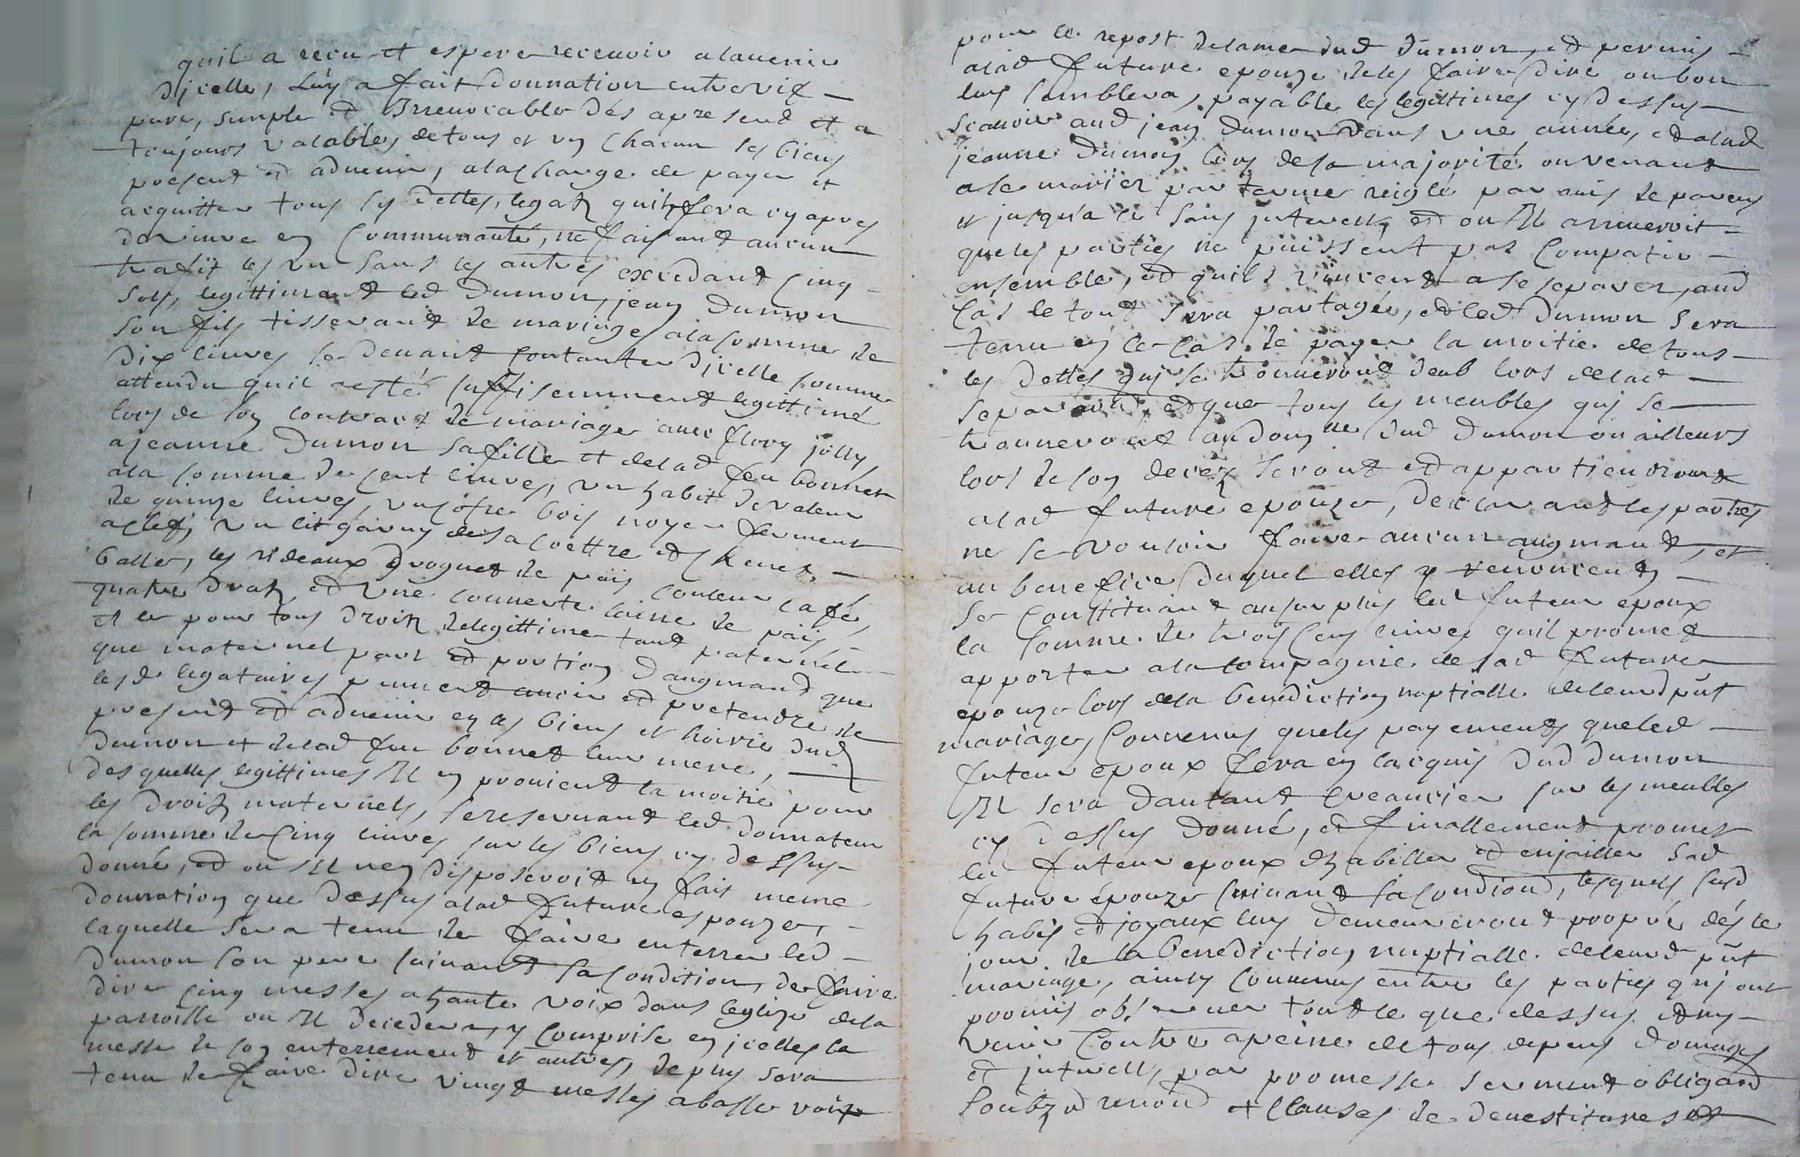 quil a reçu et espere recevoir alavenir
Djcelle, Luy a fait donnation entre vif
pure, simple et Irrevocable des apresent et a
toujours valable, de tous et un chacun ses biens
present et advenir, alacharge de payer et
acquitter tous ses dettes, legatz quil fera cy apres
de vivre en communauté, ne faisant aucun
traffit les un sans les autres excedant cinq
sols, legittimant led Dumon, jean Dumon
son fils tisserand de mariage ala somme de
dix livres se devant contanter Djcelle somme
attendu quil a esté suffisemment legittimé
lors de son contract de mariage avec flory jolly
ajeanne Dumon sa fille et delad feu bonnet
ala somme de cent livres, un habit de valeur
de quinze livres, un cofre bois noyer fermant
aclef, un lit garny de sa coettre et chevet
balle, les rideaux droguet de païs couleur caffé,
quatre draps, et une couverte laine de païs
et ce pour tous droitz de legittime tant paternel
que maternel part et portion daugmand que
lesd legataires peuvent avoir et pretendre de
present et advenir en les biens et hoirie dud
Dumon et delad feu bonnet leur mere,
des quelles legittimes Il en provient la moitié pour
les droitz maternels, se reservant led donnateur
la somme de cinq livres sur les biens cy dessus
donné, et ou Il nen disposeroit en fait meme
donnation que dessus alad future espouze,
laquelle sera tenu de faire enterrer led
Dumon son pere suivant sa condition, de faire
dire cinq messes ahaute voix dans leglize dela
parroisse ou Il decedera, y comprise en jcelles la
messe de son enterrement et autres, depuis sera
tenu de faire dire vingt messes abasse voix
pour le repost delame dud Dumon, et permis
alad future epouze deles faire dire ou bon
luy semblera, payable les legittimes cy dessus
scavoir aud jean Dumon dans une année, et alad
jeanne Dumon lors desa majorité ou venant
ase marier par terme reiglé par avis de parens
et jusqua ce sans jnterests, et ou Il arriveroit
que les parties ne puissent pas compatir
ensemble, et quils vinrent a se separer, aud
cas le tout sera partagé, et led Dumon sera
tenu en ce cas de payer la moitié de tous
les dettes qui se trouveront deub lors delad
separation, et que tous les meubles qui se
trouveront au domlle dud Dumon ou ailleurs
lors de son decez seront et appartiendront
alad future epouze, declarant les parties
ne se vouloir faire aucun augmand, et
au benefice duquel elles y renoncent
se constituant ausurplus led futeur epoux
la somme de trois cens livres quil promet
apporter ala compagnie de sad future
epouze lors dela benediction nuptialle deleurd pnt
mariage, convenus queles payements queled
futeur epoux fera en lacquis dud dumon
Il sera dautant creancier sur les meubles
cy dessus donné, et finallement promet
led futeur epoux dhabiller et enjailler sad
future épouze suivant sa condition, lesquels susd
habis et joyaux luy demeureront propre dès le
jour de la benediction nuptialle deleurd pnt
mariage, ainsy convenus entre les parties qui ont
promis observer tout ce que dessus et ny
venir contre apeine de tous depens domages
et jnterests, par promesse serment obligaon
soubz et renon et clauses de devestitures et